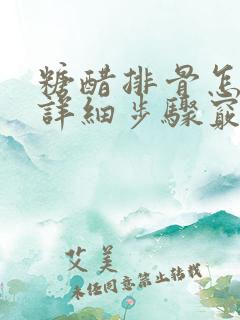 糖醋排骨怎
詳細步驟竅
艾美
未经同意禁止转载